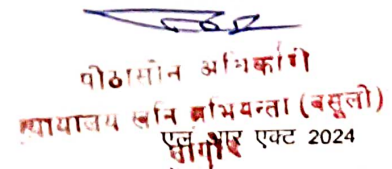 पीठासीन अधिकारी
न्यायालय खनि अभियन्ता (वसूली)
एल आर एक्ट 2024
नागौर